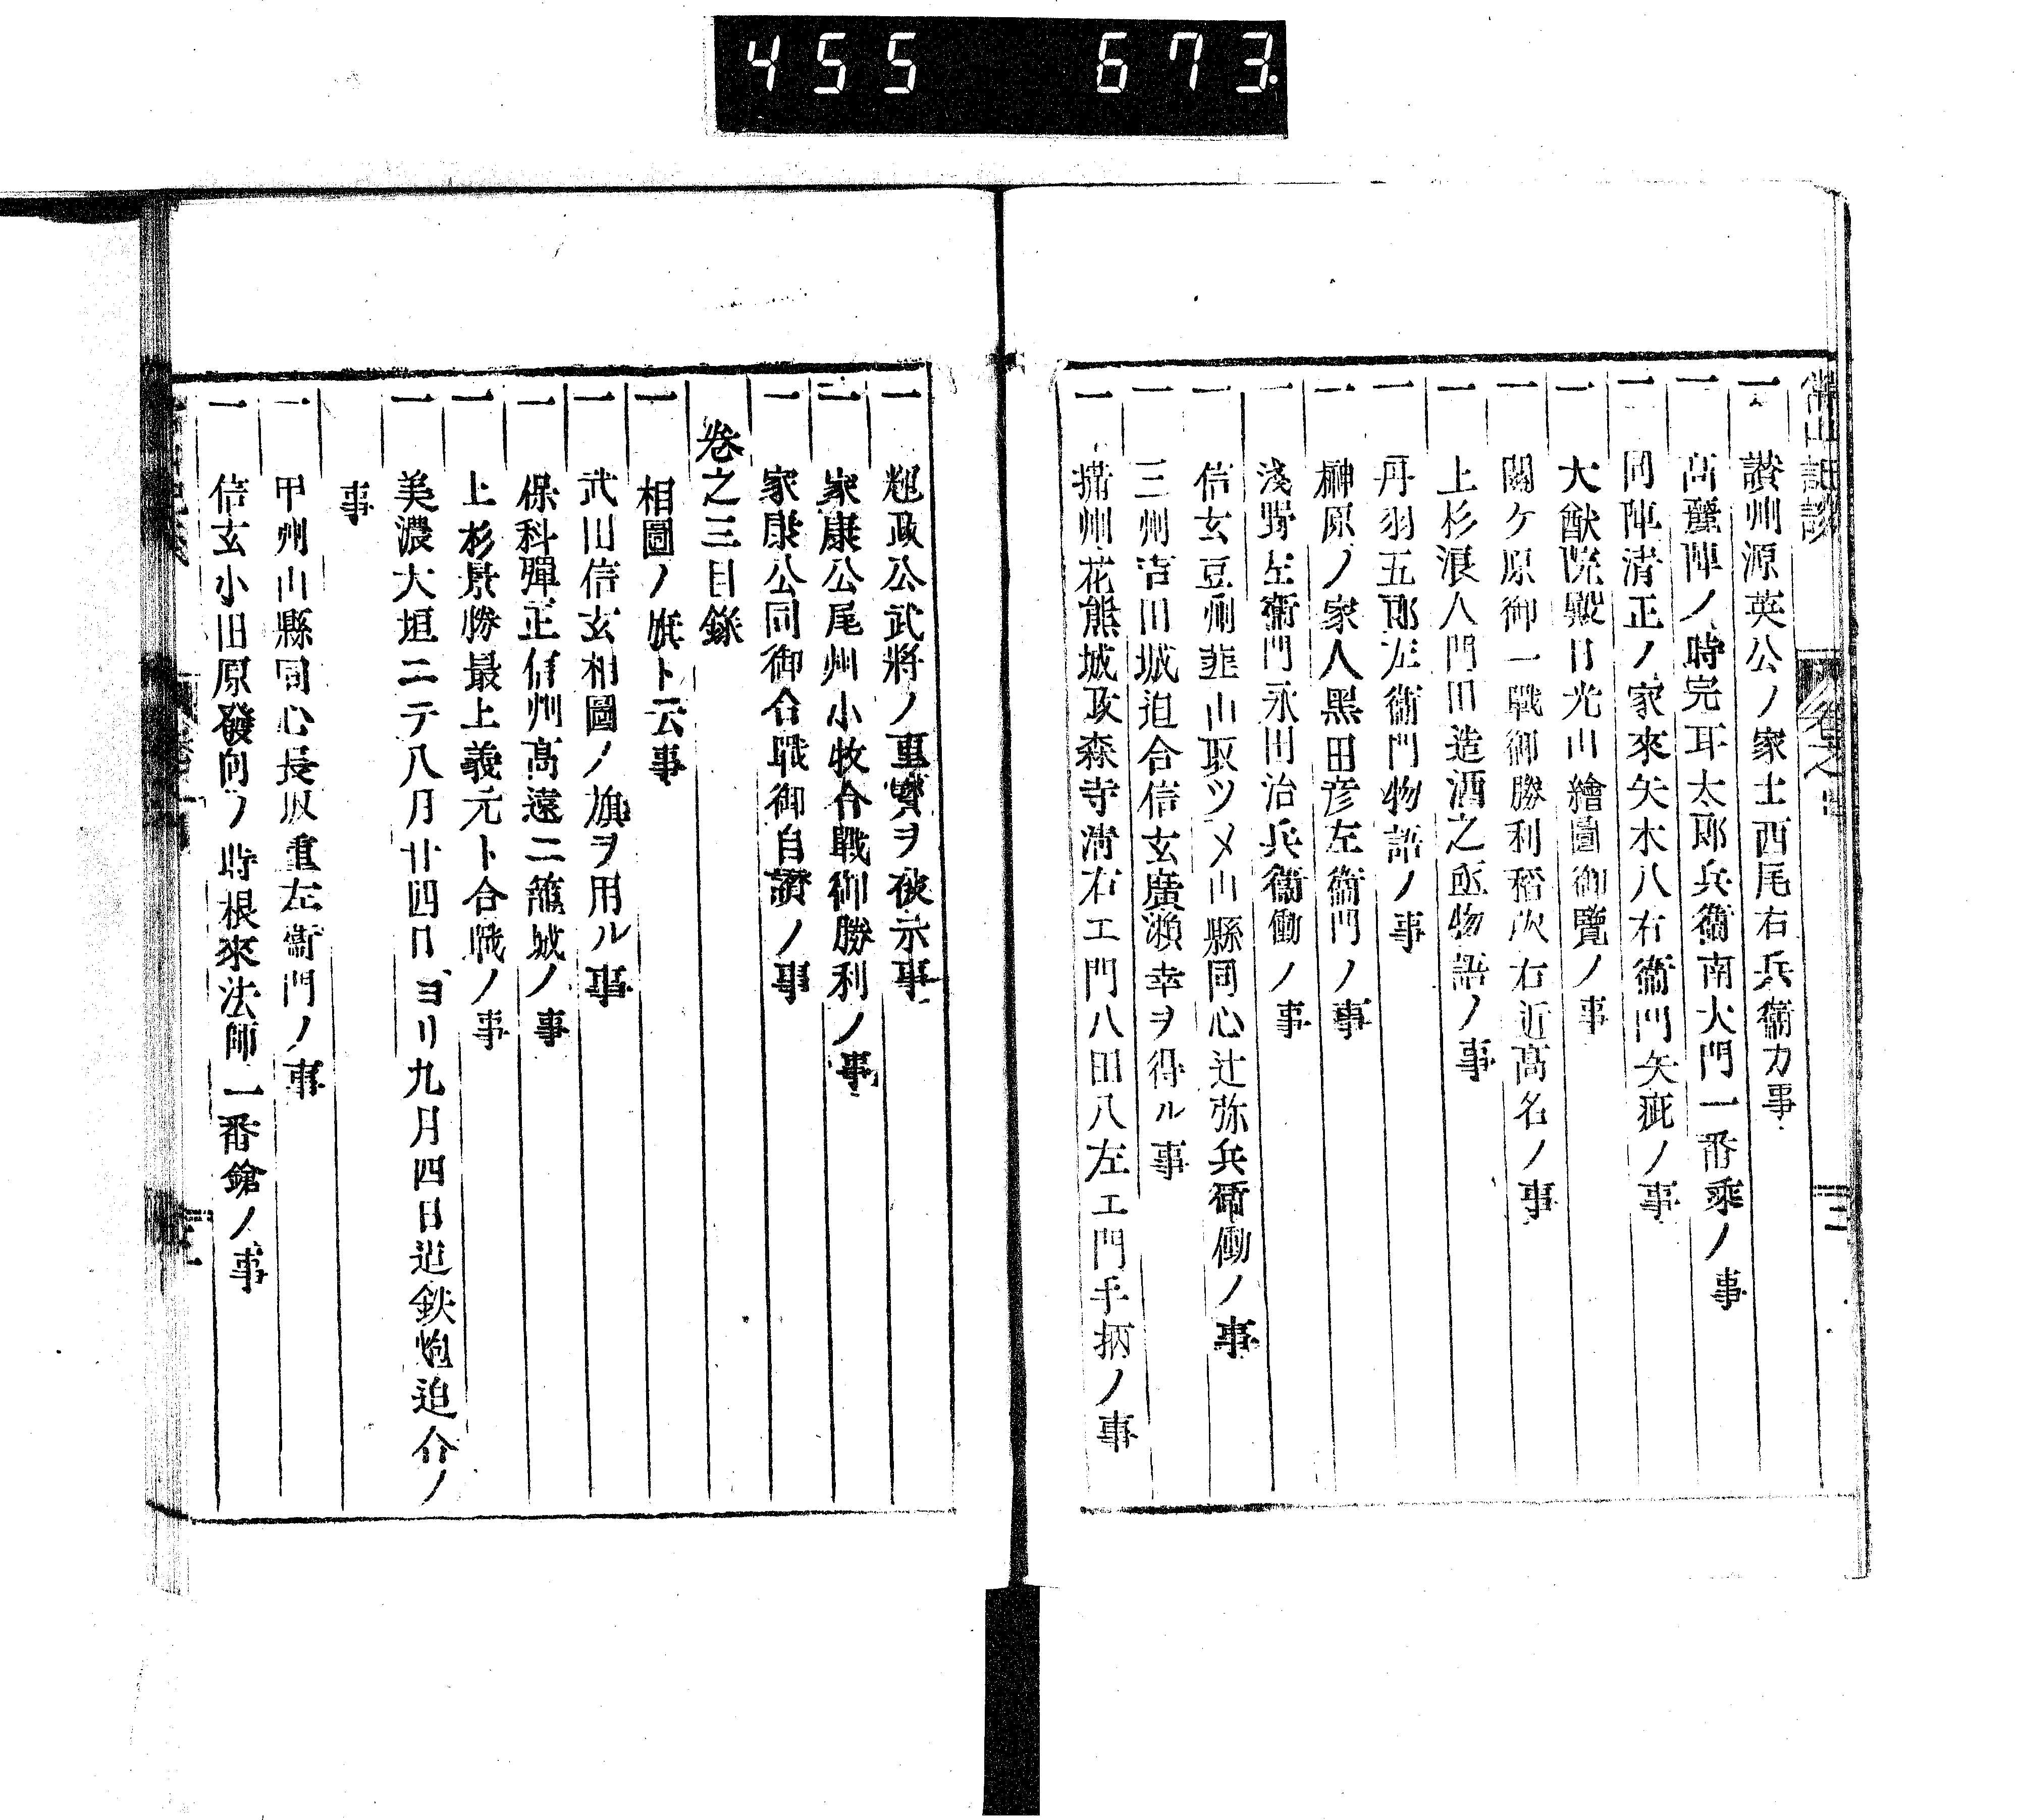 455 673
常山紀談
一 讃州源英公ノ家士西尾右兵衞カ事
一 高麗陣ノ時完耳太郎兵衞南大門一番乘ノ事
一 同陣清正ノ家來矢木八右衞門矢疵ノ事
一 大猷院殿日光山繪圖御覽ノ事
一 關ケ原御一戰御勝利稻次右近高名ノ事
一 上杉浪人門田造酒之丞物語ノ事
一 丹羽五郎左衞門物語ノ事
一 榊原ノ家人黑田彦左衞門ノ事
一 淺野左衞門永田治兵衞働ノ事
一 信玄豆州韮山取ツメ山縣同心辻弥兵衞働ノ事
一 三州吉田城迫合信玄廣瀬幸ヲ得ル事
一 攝州花熊城攻森寺清右エ門八田八左エ門手柄ノ事
一 輝政公武將ノ重寳ヲ被示事
一 家康公尾州小牧合戰御勝利ノ事
一 家康公同御合戰御自讃ノ事
卷之三目錄
一 相圖ノ旗ト云事
一 武田信玄相圖ノ旗ヲ用ル事
一 保科彈正信州高遠ニ籠城ノ事
一 上杉景勝最上義元ト合戰ノ事
一 美濃大垣ニテ八月廿四日ヨリ九月四日迄鉄炮迫合ノ
事
一 甲州山縣同心長坂重左衞門ノ事
一 信玄小田原發向ノ時根來法師一番鎗ノ事